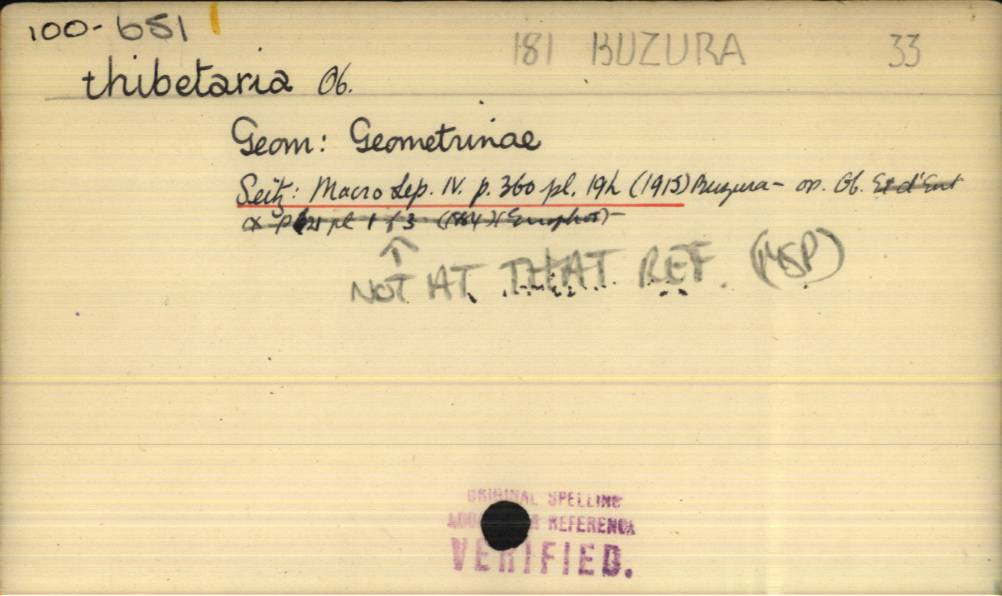 100-651
181 BUZURA 33
thibetaria Ob.
Geom: Geometrinae
Seitz: Macro Lep. IV. p. 360 pl. 19h (1915) Buzura - op. Ob. Et d'Ent
pl 1 f 3
↑
NOT AT THAT REF. (MSP)
ORIGINAL SPELLING
REFERENCE
VERIFIED.